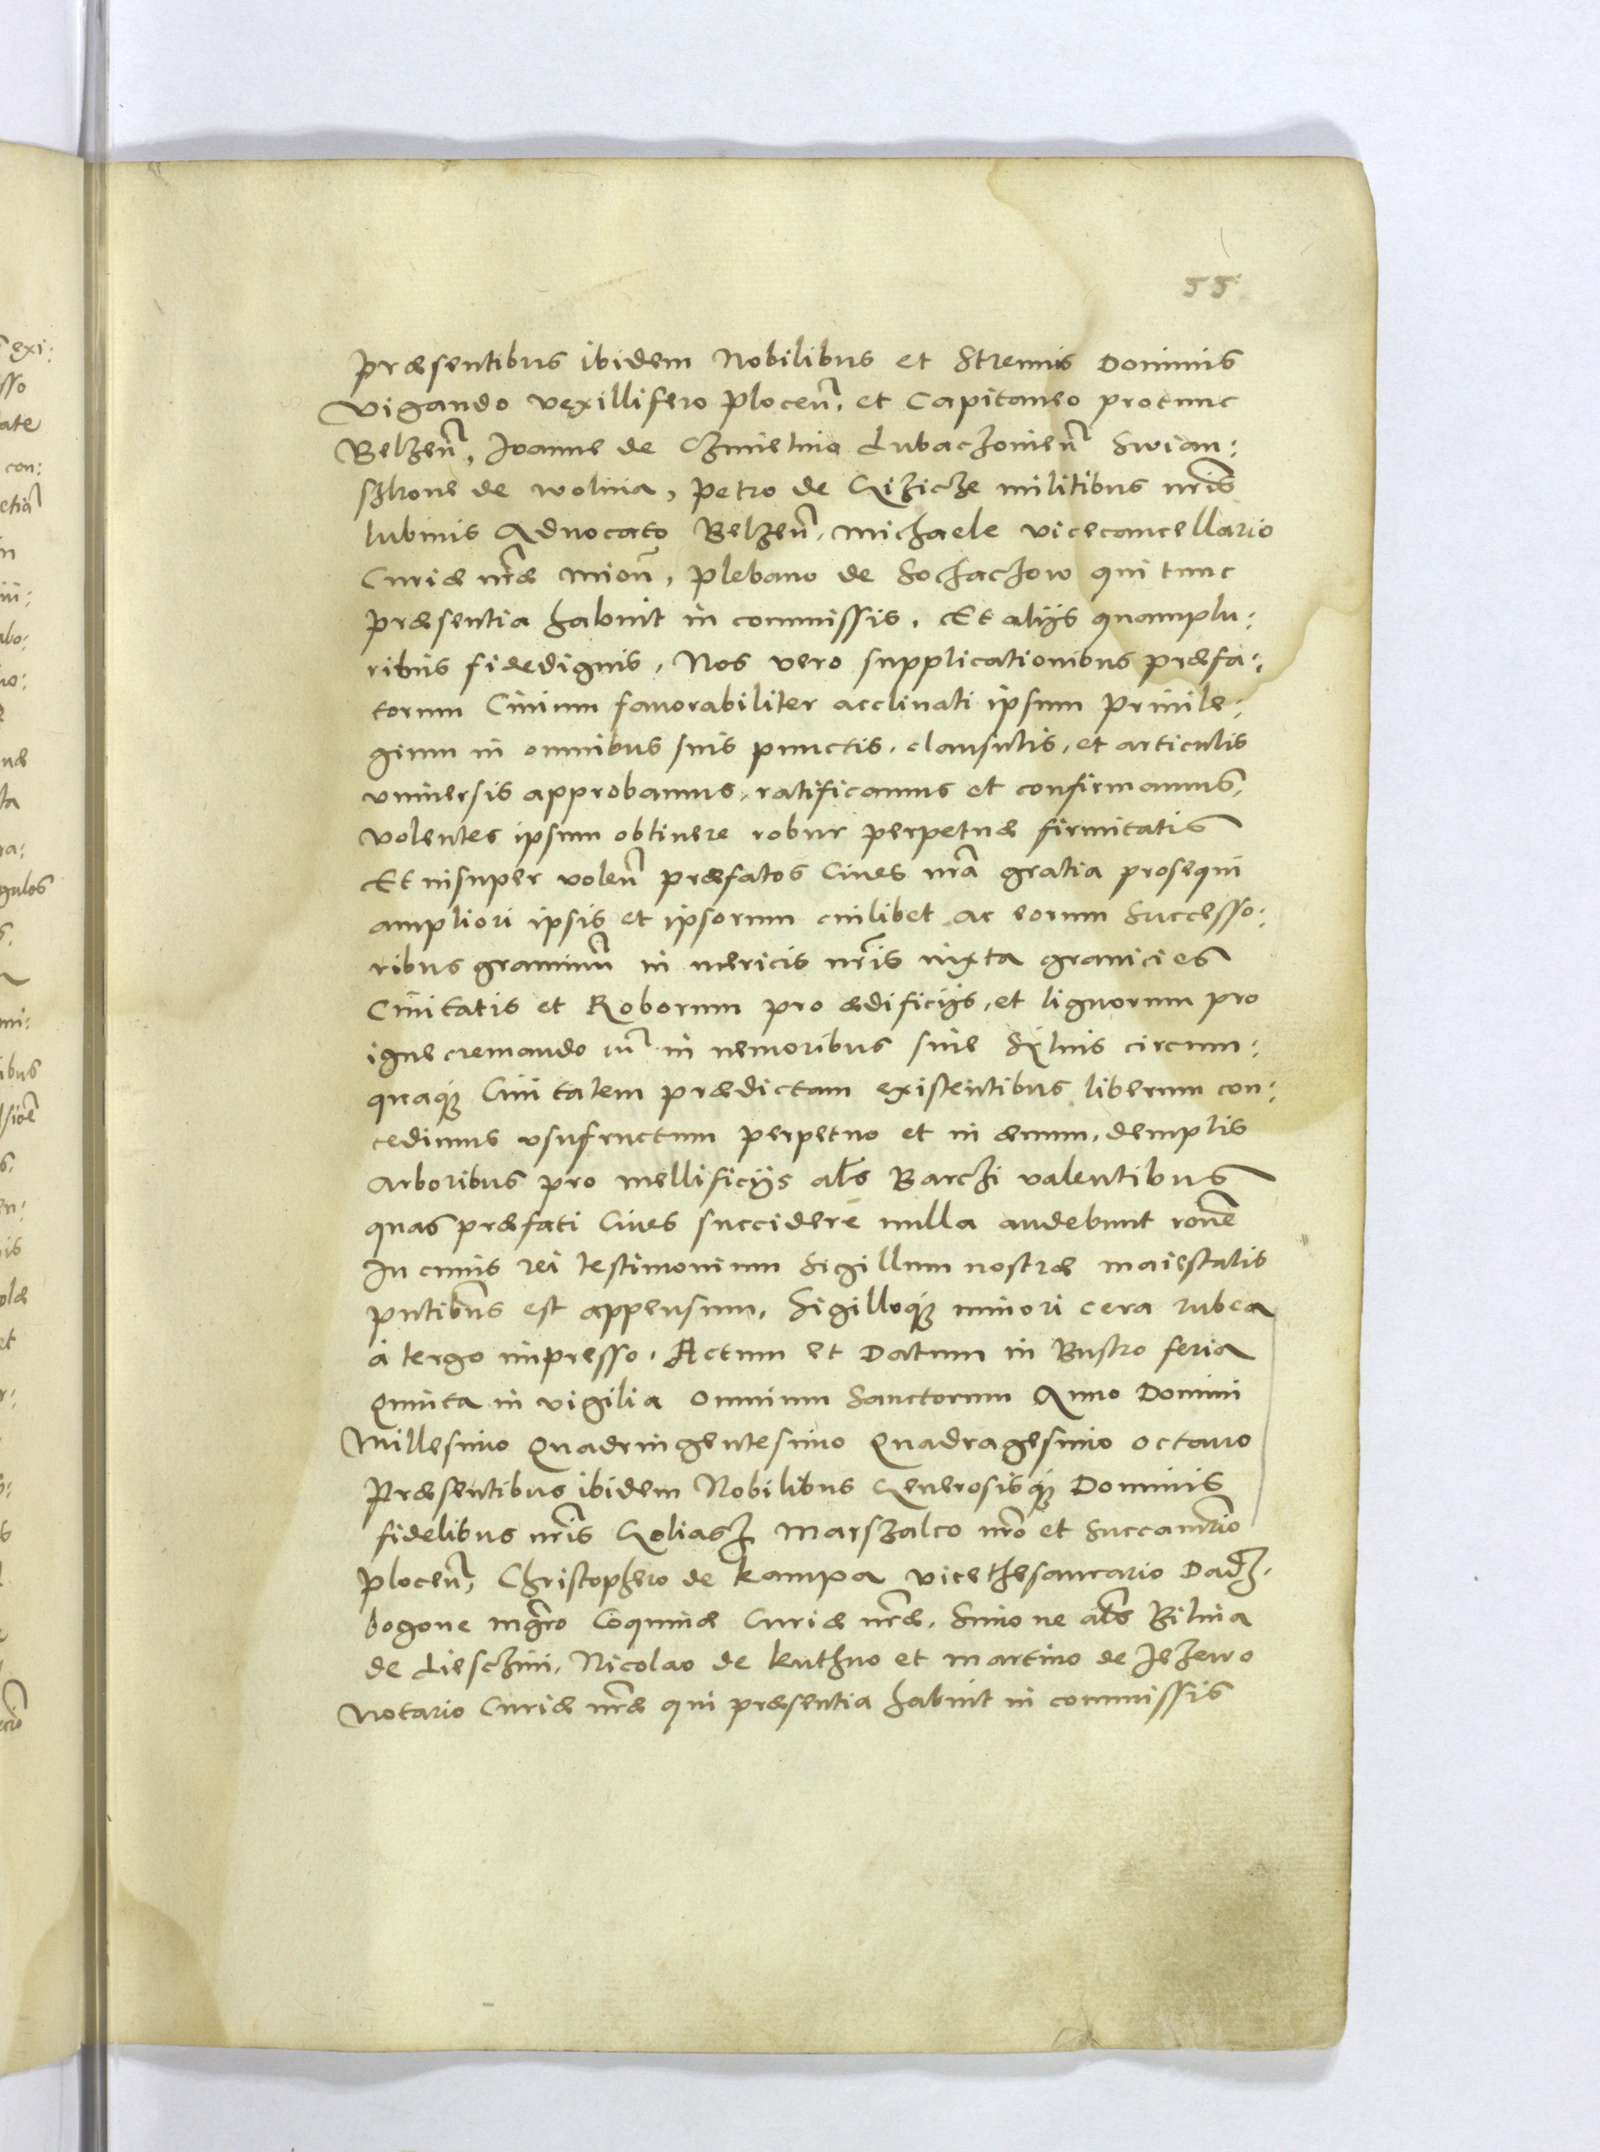 55
præsentibus ibidem Nobilibus et Strennis Dominis
Vigando vexillifero plocen̄. et Capitaneo protunc
Belzen̄, Joanne de Czmielnio Lubaczonien̄ Swian:
szkone de wolnia, petro de Gizicze militibus nr̄is
lubinis Aduocato Belzen̄. Michaele vicecancellario
Curiæ nr̄æ Mion̄, Plebano de Sochaczow qui tunc
præsentia habuit in commissis. Et alijs quamplu:
ribus fidedignis. Nos vero supplicationibus præfa:
torum Ciuium fauorabiliter acclinati ipsum Priuile:
gium in omnibus suis punctis. clausulis, et articulis
vniuersis approbamus, ratificamus et confirmamus,
volentes ipsum obtinere robur perpetuæ firmitatis
Et insuper volen̄ præfatos Ciues nr̄a gratia prosequi
ampliori ipsis et ipsorum cuilibet ac eorum Successo:
ribus graminum̄ in mericis nr̄is iuxta granicies
Ciuitatis et Roborum pro ædificijs, et lignorum pro
igne cremando in nemoribus siue Syluis circum:
quaq; Ciuitatem prædictam existentibus liberum con:
cedimus vsufructum perpetuo et in æuum, demptis
Arboribus pro mellificijs al̄s Barczi valentibus
quas præfati Ciues succidere nulla audebunt rōne
In cuius rei testimonium Sigillum nostræ maiestatis
pn̄tibus est appensum. Sigilloq; minori cera rubea
à tergo impresso. Actum et Datum in Bustro feria
Quinta in vigilia Omnium Sanctorum Anno Domini
Millesimo Quadringentesimo Quadragesimo octauo
Præsentibus ibidem Nobilibus Generosisq; Dominis
fidelibus nr̄is Goliasz Marszalco nr̄o et Succamr̄io
plocen̄, Christophero de Kampa Vicethesaurario Dadz.
bogone mg̃ro Coquinæ Curiæ nr̄æ. Simone al̄s Bilina
de Lieszini. Nicolao de Kuthno et Martino de Jezewo
Notario Curiæ nr̄æ qui præsentia habuit in commissis